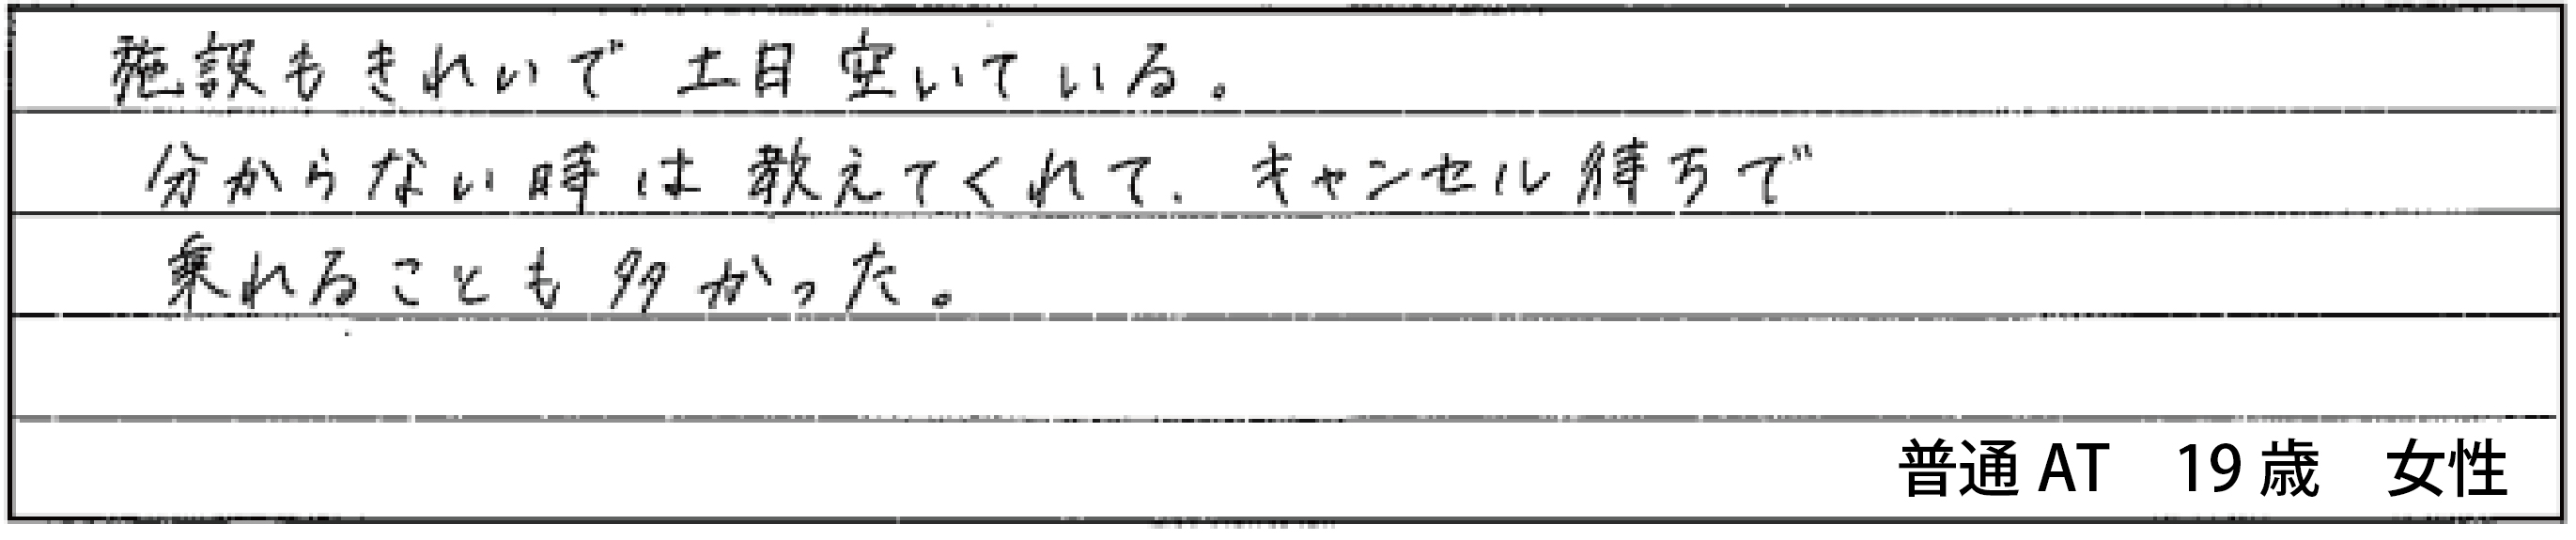 施設もきれいで土日空いている。
分からない時は教えてくれて、キャンセル待ちで
乗れることも多かった。
普通AT　19歳　女性